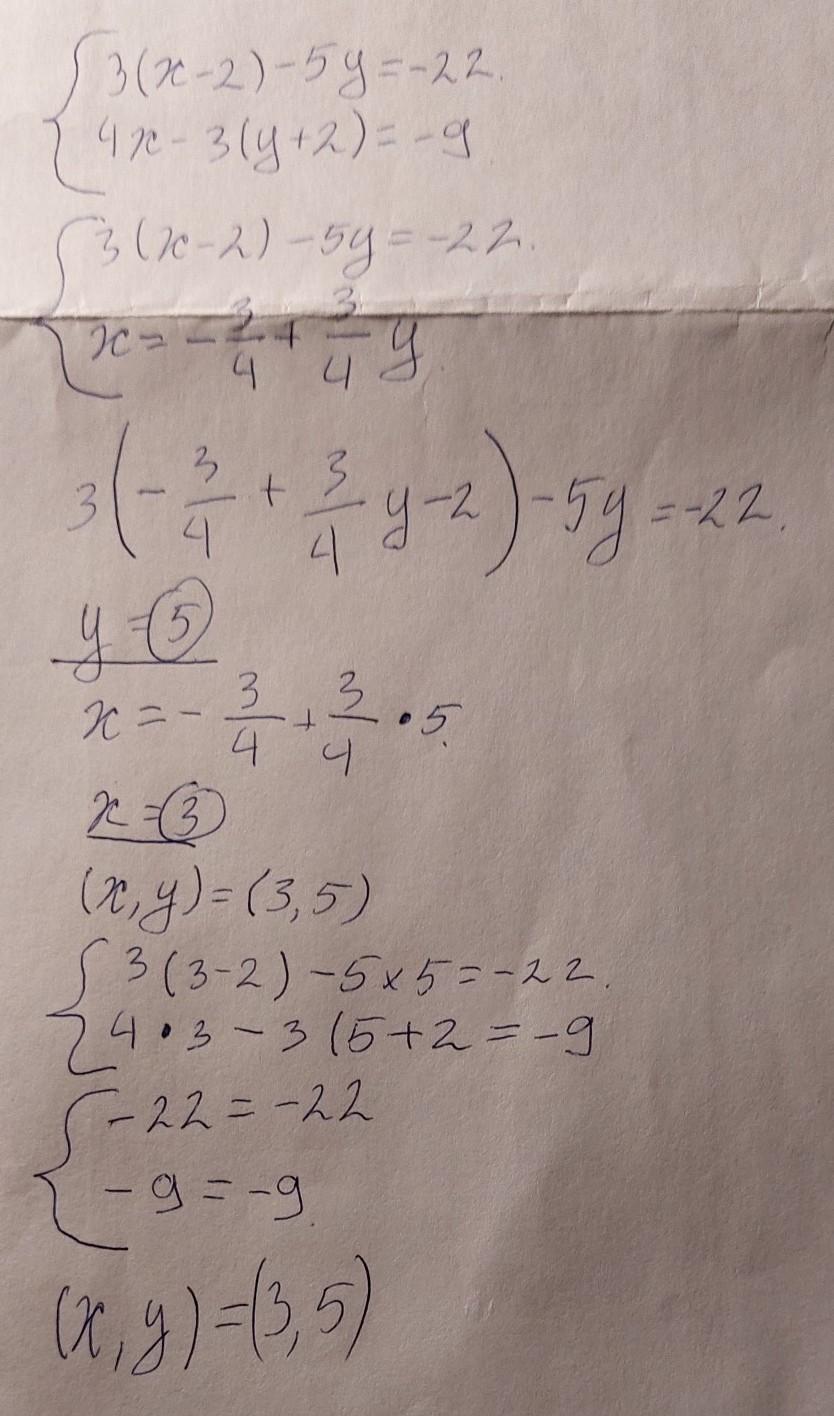 3(x-2)-5y=-22.
4x-3(y+2)=-9
3(x-2)-5y=-22.
x=-3/4+3/4 y.
3(-3/4+3/4 y-2)-5y=-22.
y=5
x=-3/4+3/4•5.
x=3
(x,y)=(3,5)
3(3-2)-5×5=-22.
4•3-3(5+2=-9
-22=-22
-9=-9.
(x,y)=(3,5)